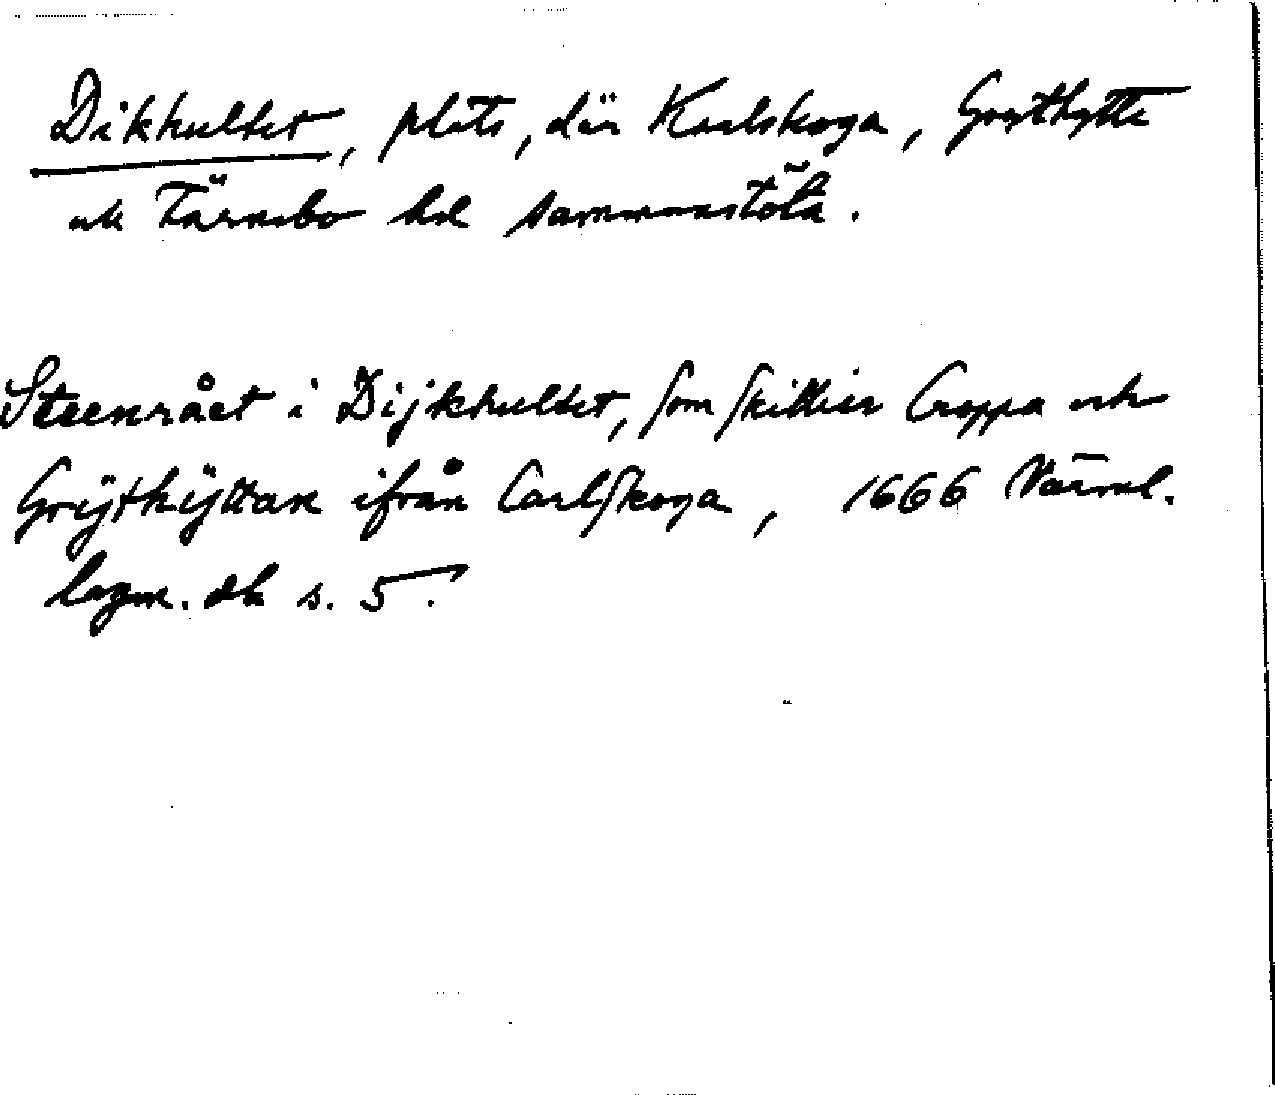 Dikhultet, plats, där Karlskoga, Grythytte
och Färnebo hd sammanstöta.
Steenrået i Dijkhultet, som skillier Croppa och
Grijthÿttan ifrån Carlskoga, 1666 Värml.
lagm. db s. 5.